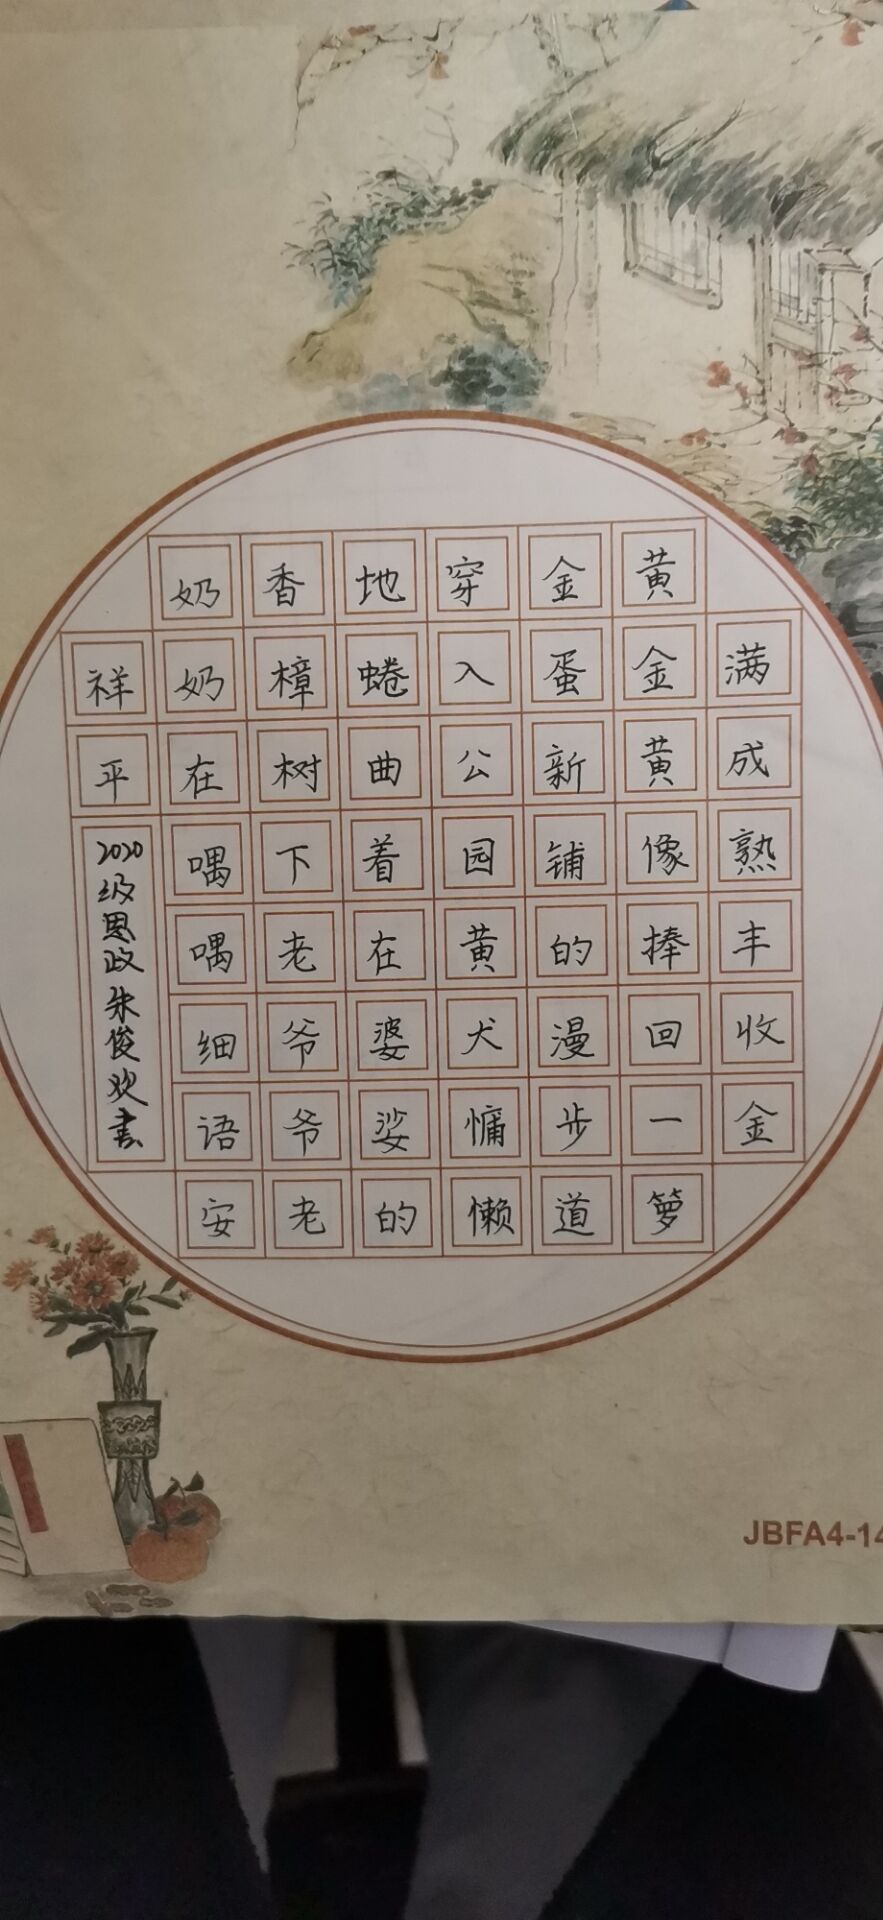 满成熟丰收金
黄金黄像捧回一箩
金蛋新铺的漫步道
穿入公园黄犬慵懒
地蜷曲着在婆娑的
香樟树下老爷爷老
奶奶在喁喁细语安
祥平
2020级思政朱俊欢书
JBFA4-14